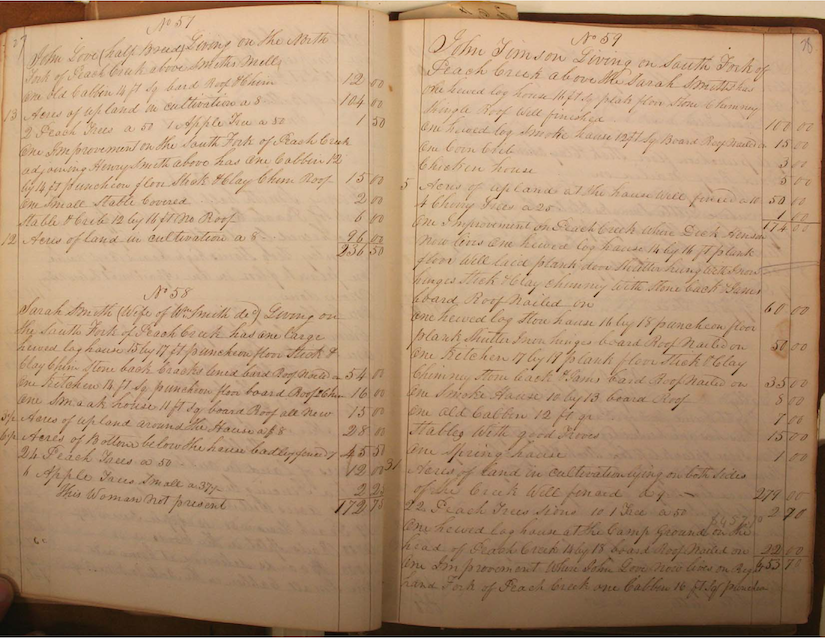 27
No 57
John Gove (half Breed) Living on the North
Fork of Peach Creek above Smiths Mill
One Old Cabbin 14 ft Sq bord Roof & Chim 12 00
13 Acres of upland in cultivation a 8 104 00
2 Peach Trees a 50 1 Apple Tree a 50 1 50
One Improvement on the South Fork of Peach Creek
adjoining Henry Smith above has One Cabbin 12
by 14 ft puncheon floor Stick & Clay Chim Roof 15 00
One Small Stable Covered 2 00
Stable & Crib 12 by 16 ft No Roof 6 00
12 Acres of land in cultivation a 8 96 00
236 50
No 58
Sarah Smith (Wife of Wm Smith de) Living on
the South Fork of Peach Creek has One large
hewed log house by 17 ft puncheon floor Stick &
Clay Chim Stone back Cracks lined bord Roof Nailed on 54 00
One Kitchen 14 ft Sq puncheon floor board Roof & Chim 16 00
One Smoak house 11 ft Sq board Roof all New 15 00
3½ Acres of upland around the House a 8 28 00
6½ Acres of Bottom below the house bad 7 45 50
24 Peach Trees a 50 12 00
6 Apple Trees Small a 37½ 2 25
This Woman Not present 172 75
28
No 59
John Timson Living on South Fork of
Peach Creek above the Sarah Smith has
One hewed log house 16 ft Sq plank floor Stone Chimney
Shingle Roof Well finished 100 00
One hewed log Smoke house 12 ft Sq Board Roof Nailed on 15 00
One Corn Crib 3 00
Chicken house 5 00
5 Acres of upland at the house Well a 10 50 00
4 Cherry Trees a 25 1 00
174 00
One Improvement on Peach Creek Where Dick
Now lives One hewed log house 14 by 16 ft plank
floor Well plank door Shutter hung With Iron
hinges Stick & Clay chimney With Stone back & Jams
board Roof Nailed on 60 00
One hewed log Stow house 16 by 15 puncheon floor
plank Shutter Iron hinges board Roof Nailed on 50 00
One Kitchen 17 by 17 plank floor Stick & Clay
Chimney Stone back & Jams bord Roof Nailed on 35 00
One Smoke House 10 by 13 board Roof 8 00
One Old Cabbin 12 ft 7 00
Stables With good 15 00
One Spring house 1 00
31 Acres of land in cultivation lying on both Sides
of the Creek Well a 9 279 00
22 Peach Trees 1 Tree a 50
One hewed log house at the Camp Ground on the
head of Peach Creek 14 by 18 board Roof Nailed on 22 00
One Improvement Where John Love Now lives on Right
hand Fork of Peach Creek One Cabbin 16 ft Sq puncheon